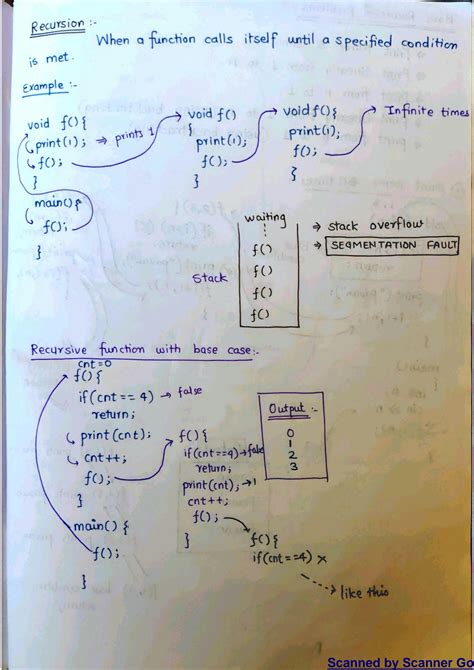 Recursion :-
When a function calls itself until a specified condition
is met.
Example :-
void f(){
print(1); ⇒ prints 1
f();
}
main(){
f();
}
void f()
{
print(1);
f();
}
void f(){
print(1);
f();
}
Infinite times
waiting
f()
f()
f()
f()
Stack
→ stack overflow
→ SEGMENTATION FAULT
Recursive function with base case:-
cnt=0
f(){
if(cnt == 4) → false
return;
print(cnt);
cnt++;
f();
}
main() {
f();
}
f(){
if(cnt==4)→false
return;
print(cnt);→1
cnt++;
f();
}
f(){
if(cnt==4) x
like this
Output :-
0
1
2
3
Scanned by Scanner Go